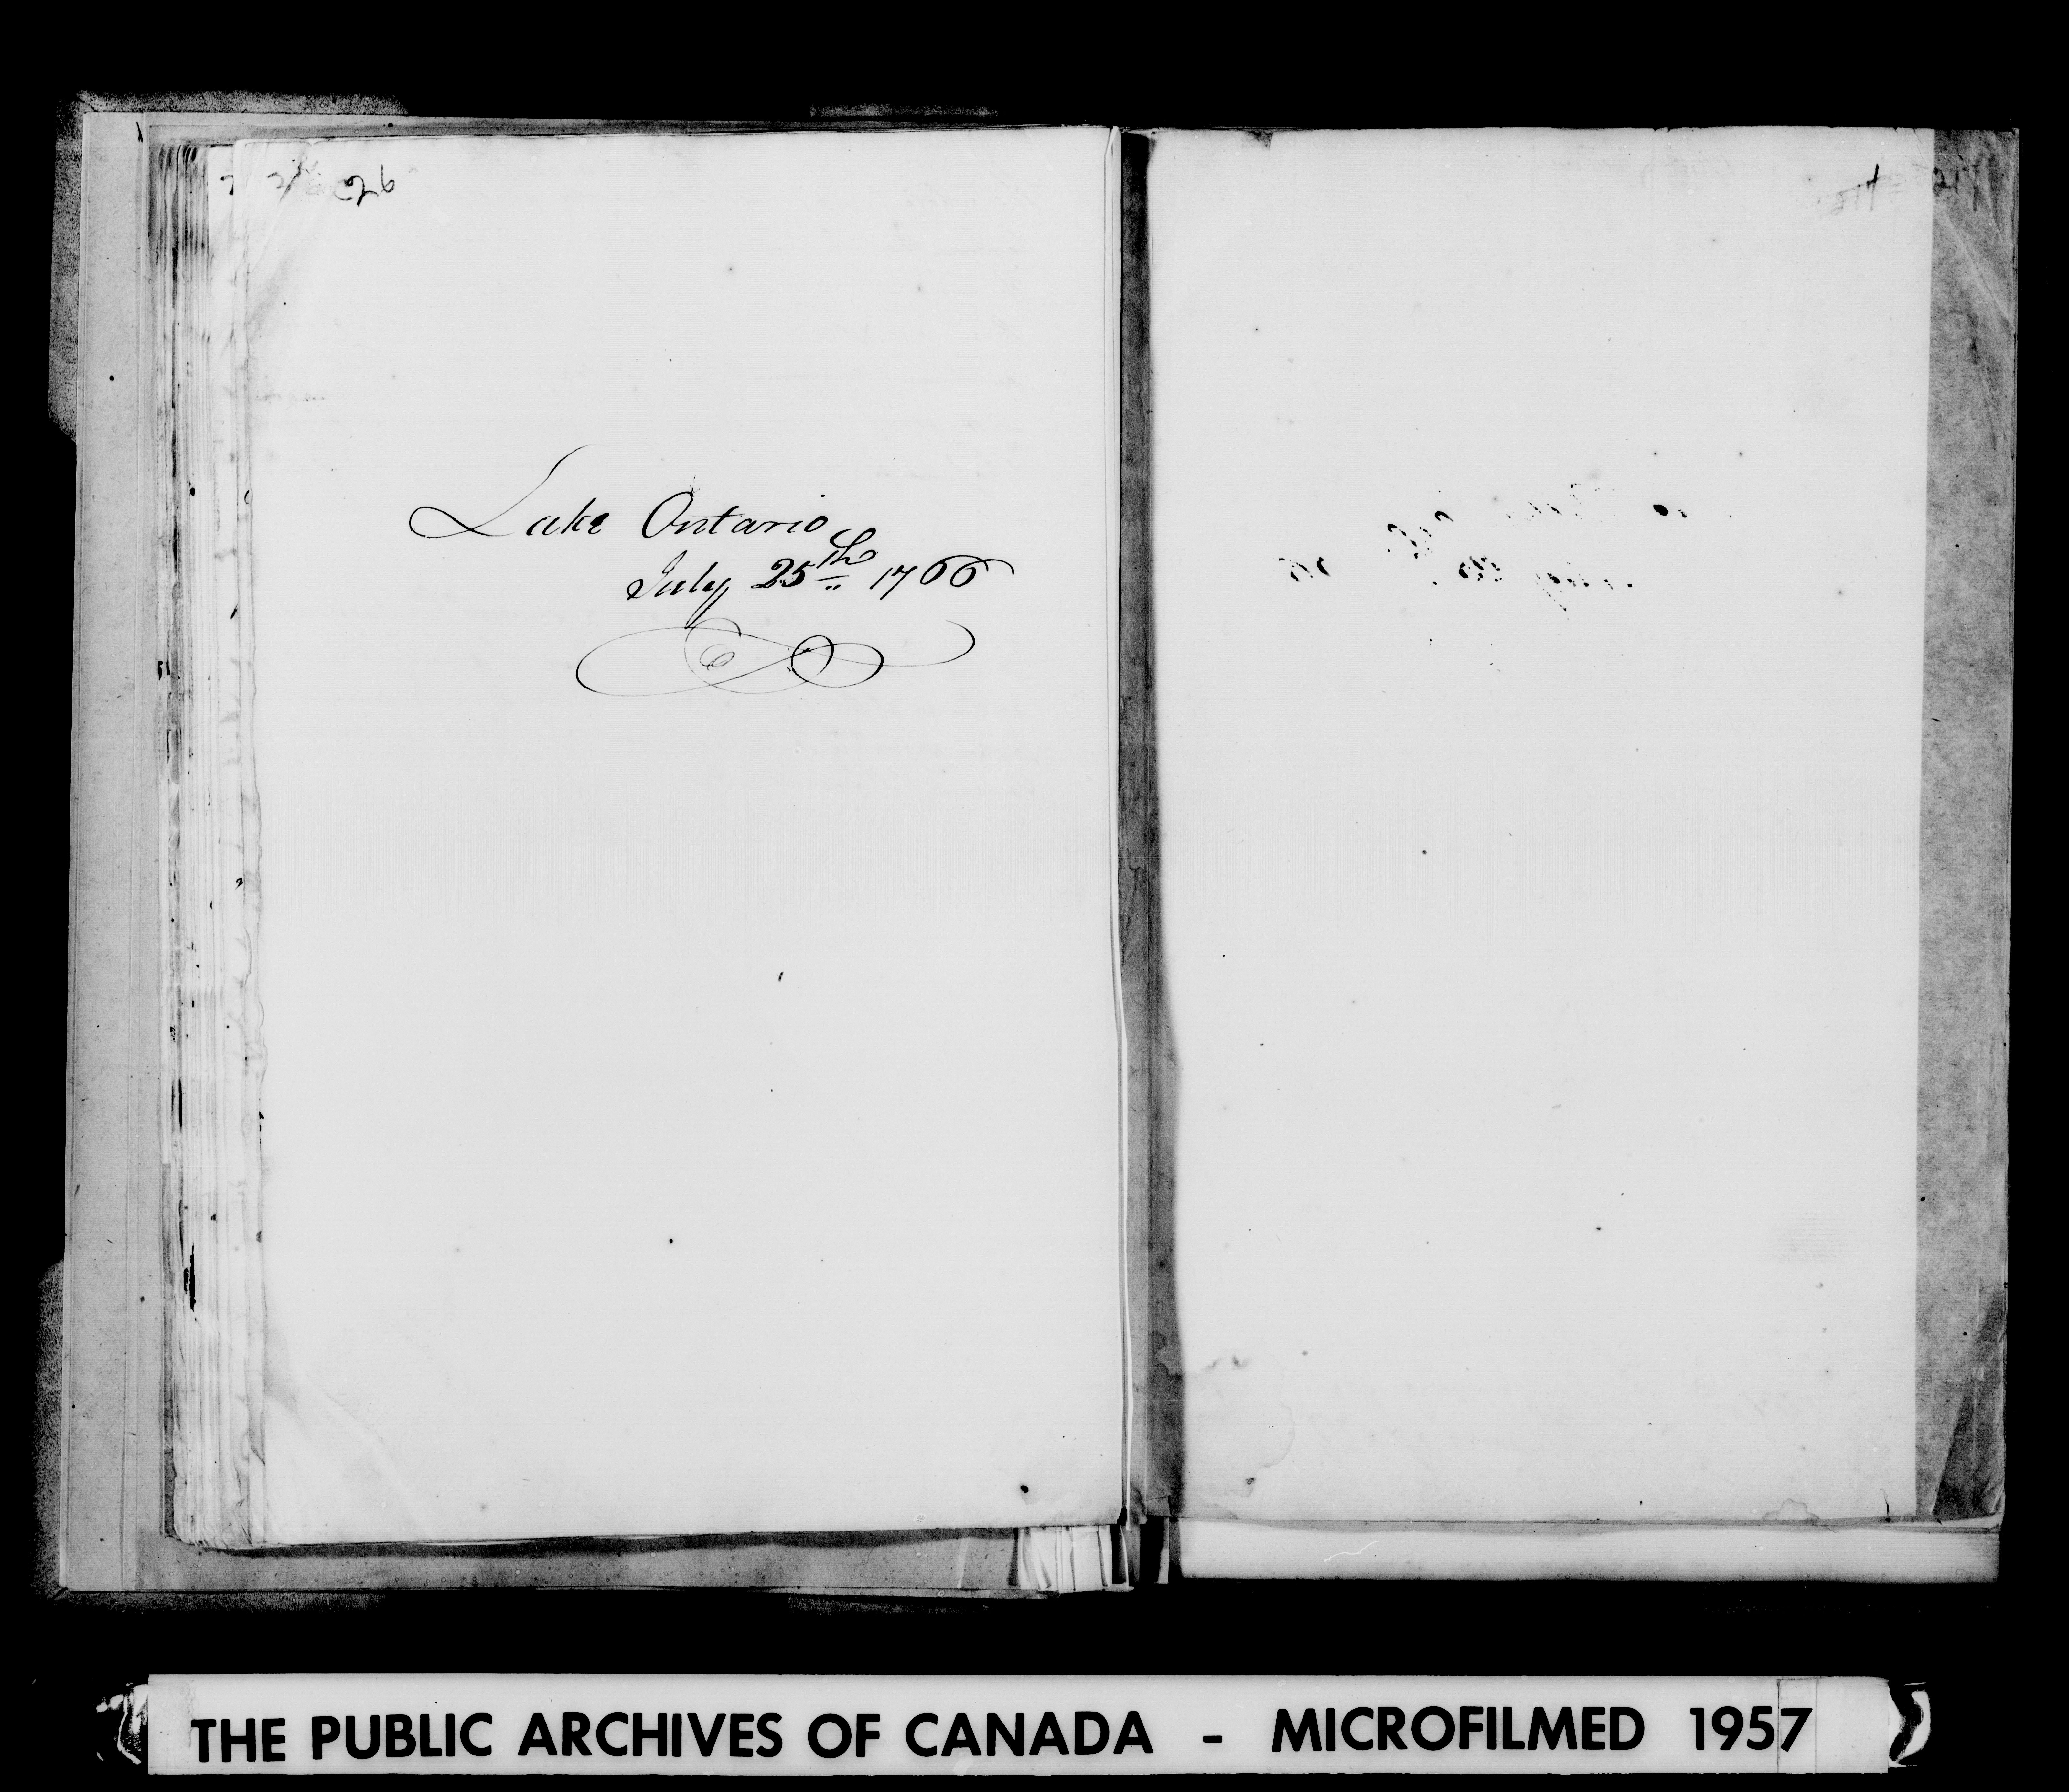 Lake Ontario
July 25th 1766
THE PUBLIC ARCHIVES OF CANADA - MICROFILMED 1957